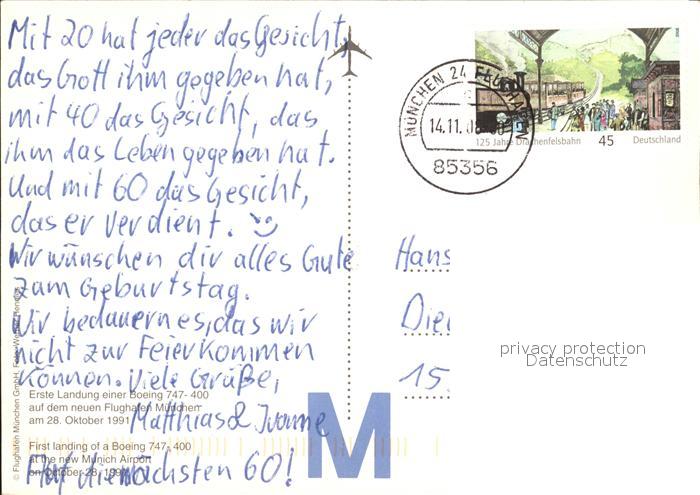 Mit 20 hat jeder das Gesicht,
das Gott ihm gegeben hat,
mit 40 das Gesicht, das
ihm das Leben gegeben hat.
Und mit 60 das Gesicht,
das er verdient.
Wir wünschen dir alles Gute
zum Geburtstag.
Wir bedauern es, das wir
nicht zur Feier kommen
können. Viele Grüße,
Matthias & Ivonne
Auf die nächsten 60!
Erste Landung einer Boeing 747- 400
auf dem neuen Flughafen München
am 28. Oktober 1991
First landing of a Boeing 747- 400
at the new Munich Airport
on October 28, 1991
© Flughafen München GmbH, Foto: Werner Hennies
M
MÜNCHEN 24 FLUGHAFEN
14.11.08
85356
125 Jahre Drachenfelsbahn 45 Deutschland
Hans
15
privacy protection
Datenschutz